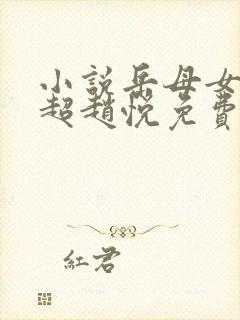 小說岳母女
超趙悅免費
紅君